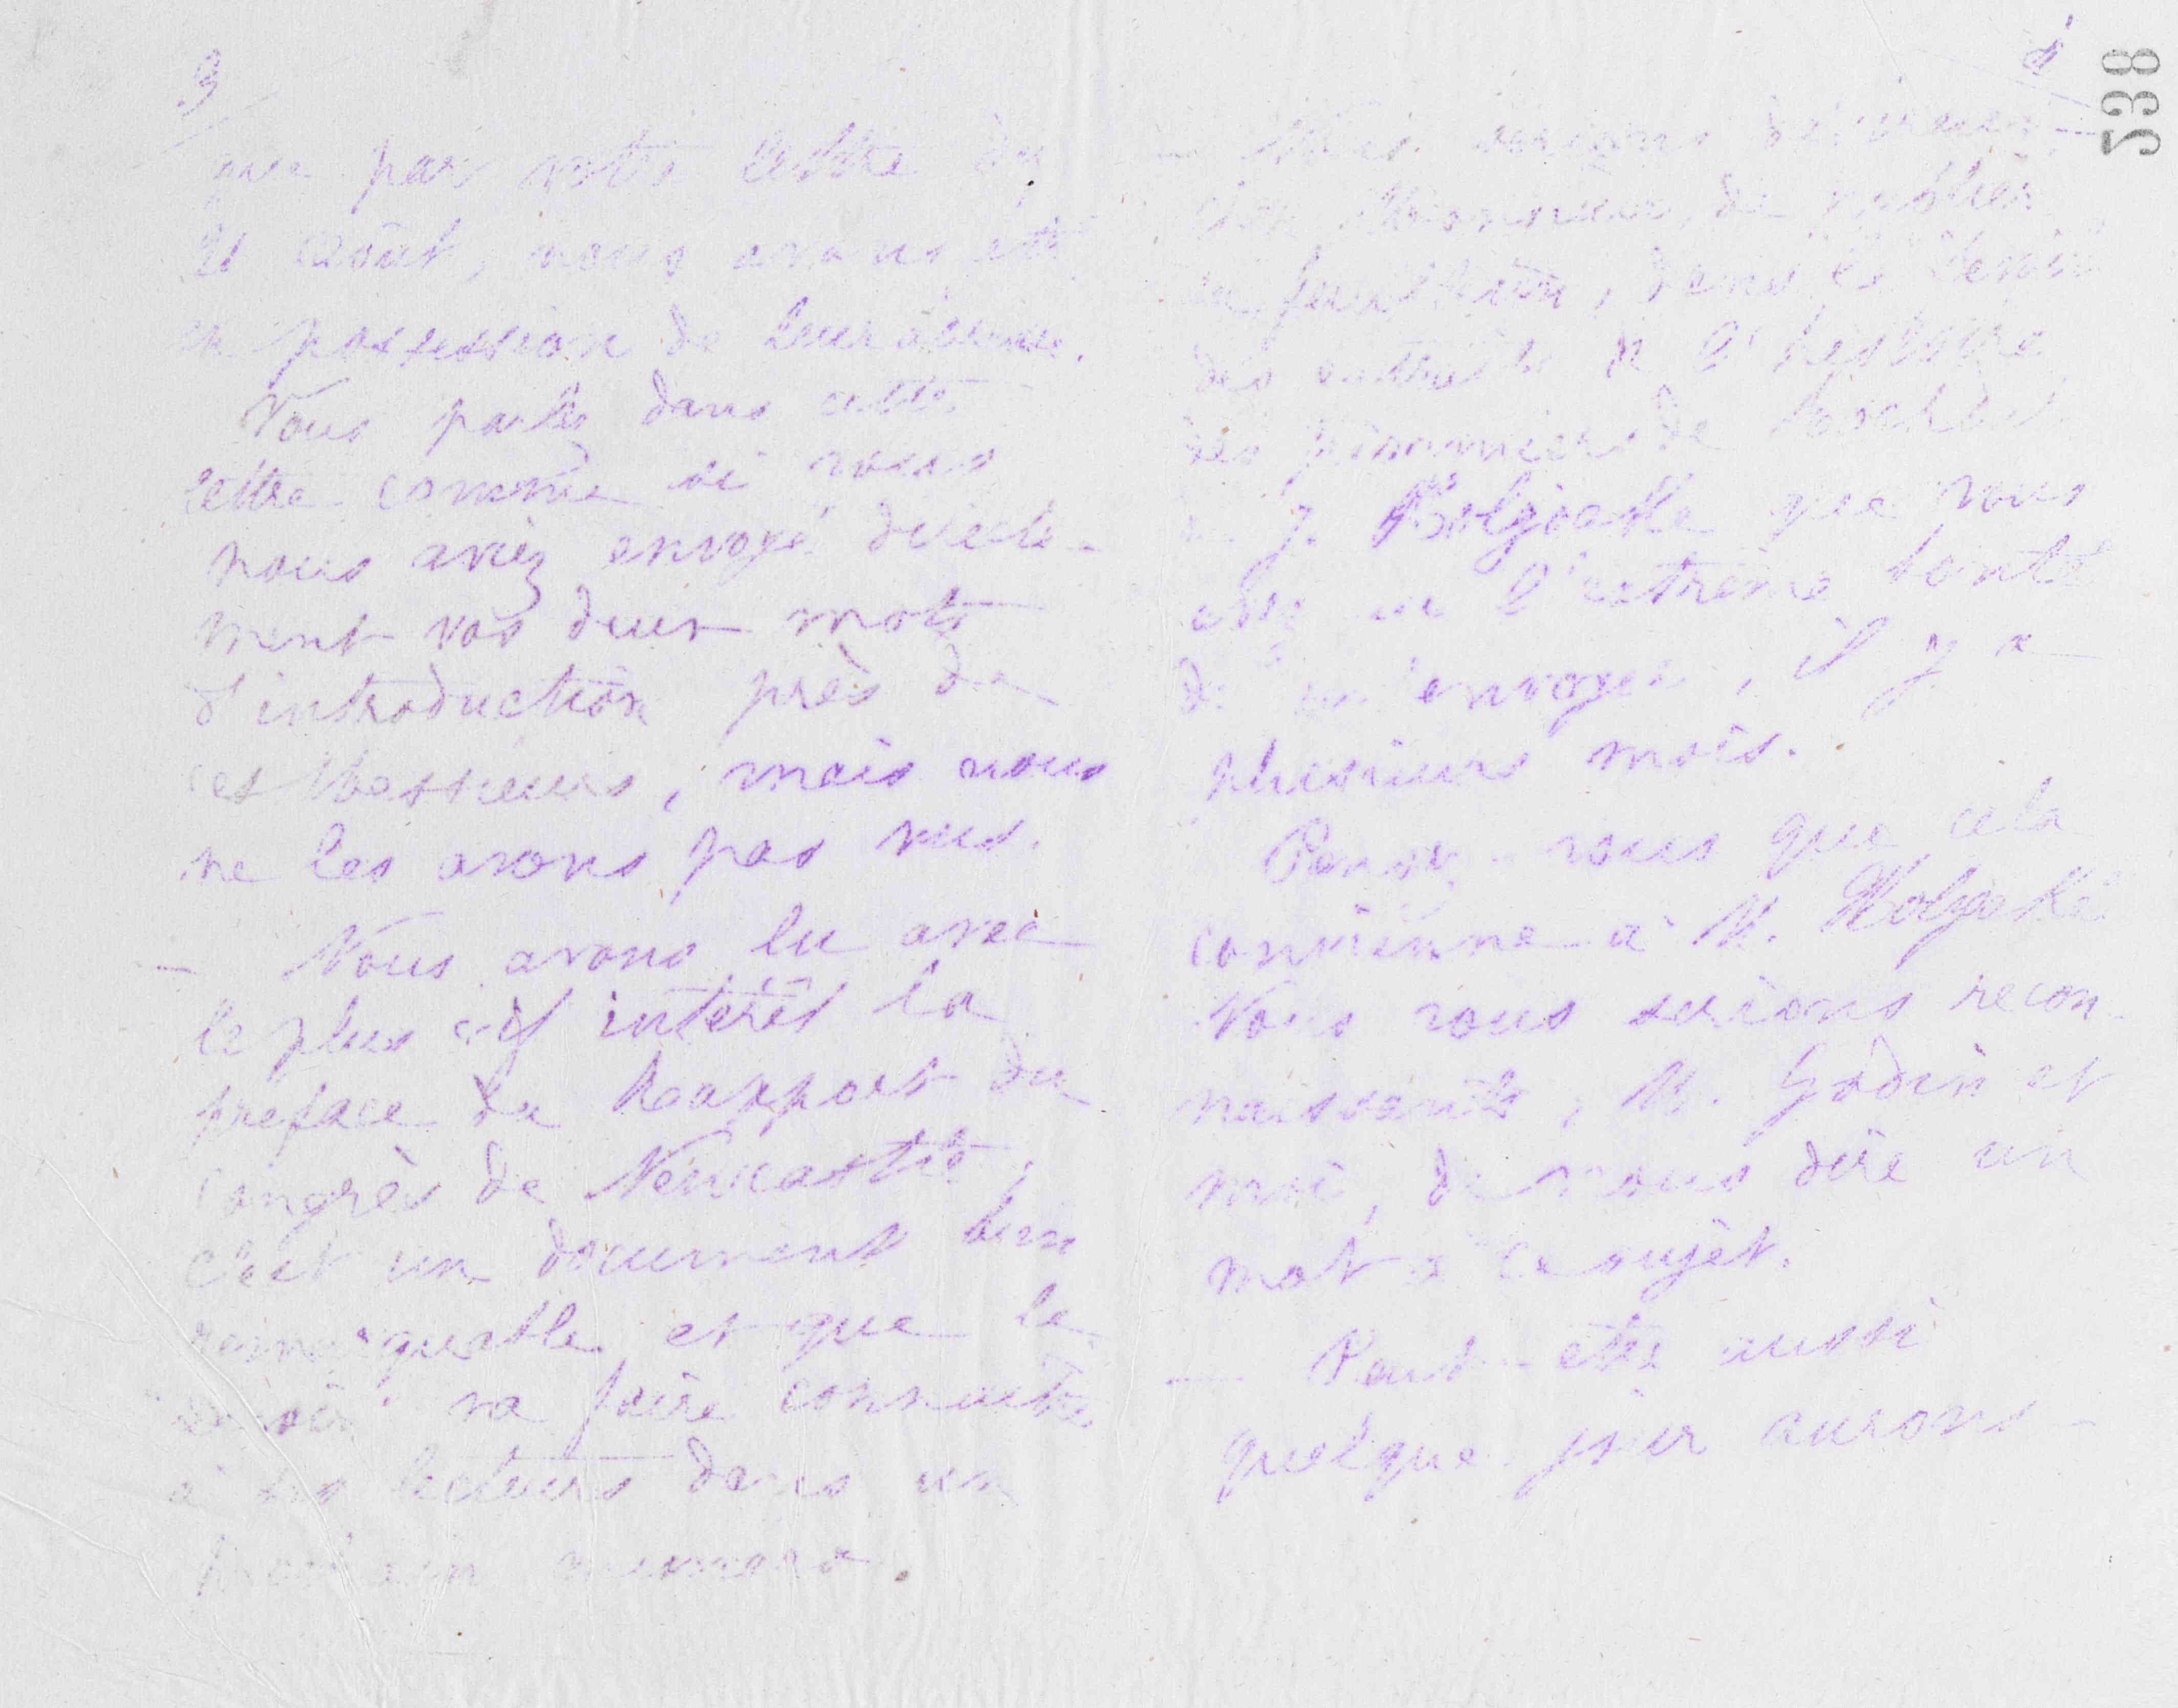 3
que par votre lettre du
août, nous avons été
en possession de leur adresse.
Vous parlez dans cette
lettre comme si vous
nous aviez envoyé directe-
ment vos deux mots
d'introduction près de
ces Messieurs, mais nous
ne les avons pas vus.
— Nous avons lu avec
le plus vif intérêt la
préface du Rapport du
Congrès de Newcastle,
c'est un document bien
remarquable et que le
Devoir va faire connaître
à ses lecteurs dans un
prochain numéro.
4
538
— Nous serions désireux,
cher Monsieur, de publier
en feuilleton, dans le Devoir
des extraits de l'histoire
des pionniers de Rochdale
J. Holyoake que vous
avez eu l'extrême bonté
de m'envoyer, il y a
plusieurs mois.
Pensez-vous que cela
convienne à M. Holyoake
Nous vous serions recon-
naissants, M. Godin et
moi, de nous dire un
mot à ce sujet.
— Peut-être aussi
quelque jour aurons-